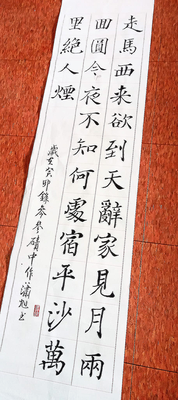 走馬西來欲到天辭家見月兩
囬圓今夜不知何處宿平沙萬
里絕人煙
歲在癸卯錄岑參磧中作瀟旭书